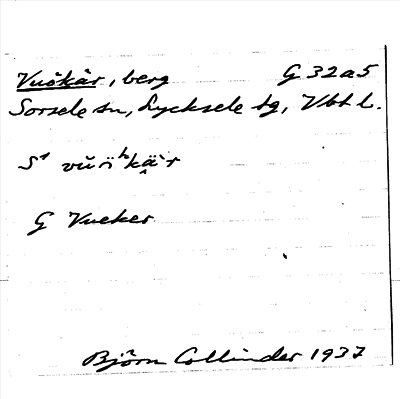 Vuökår, berg G 32a5
Sorsele sn, Lycksele tg, Vbt l.
G Vueker
Björn Collinder 1937